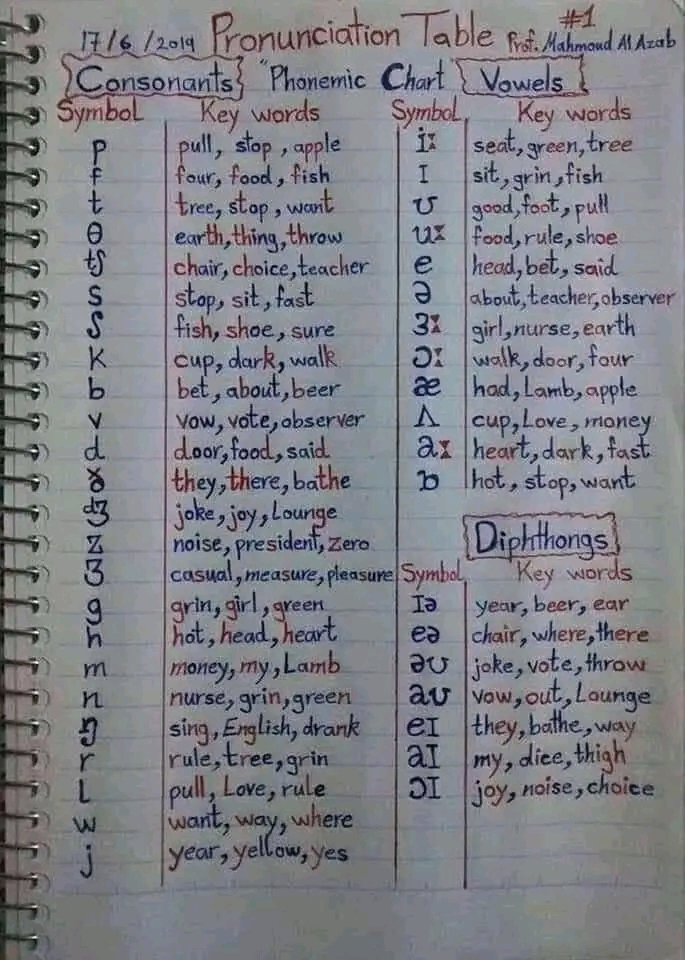 17/6/2019 Pronunciation Table #1 Prof. Mahmoud Al Azab
Consonants "Phonemic Chart" Vowels
Symbol Key words Symbol Key words
p pull, stop, apple iː seat, green, tree
f four, food, fish I sit, grin, fish
t tree, stop, want ʊ good, foot, pull
θ earth, thing, throw uː food, rule, shoe
tʃ chair, choice, teacher e head, bet, said
s stop, sit, fast ə about, teacher, observer
ʃ fish, shoe, sure ɜː girl, nurse, earth
k cup, dark, walk ɔː walk, door, four
b bet, about, beer æ had, Lamb, apple
v vow, vote, observer ʌ cup, Love, money
d door, food, said aː heart, dark, fast
ð they, there, bathe ɒ hot, stop, want
dʒ joke, joy, Lounge
z noise, president, zero Diphthongs
ʒ casual, measure, pleasure Symbol Key words
g grin, girl, green Iə year, beer, ear
h hot, head, heart eə chair, where, there
m money, my, Lamb əʊ joke, vote, throw
n nurse, grin, green aʊ vow, out, Lounge
ŋ sing, English, drank eI they, bathe, way
r rule, tree, grin aI my, dice, thigh
L pull, Love, rule ɔI joy, noise, choice
w want, way, where
j year, yellow, yes